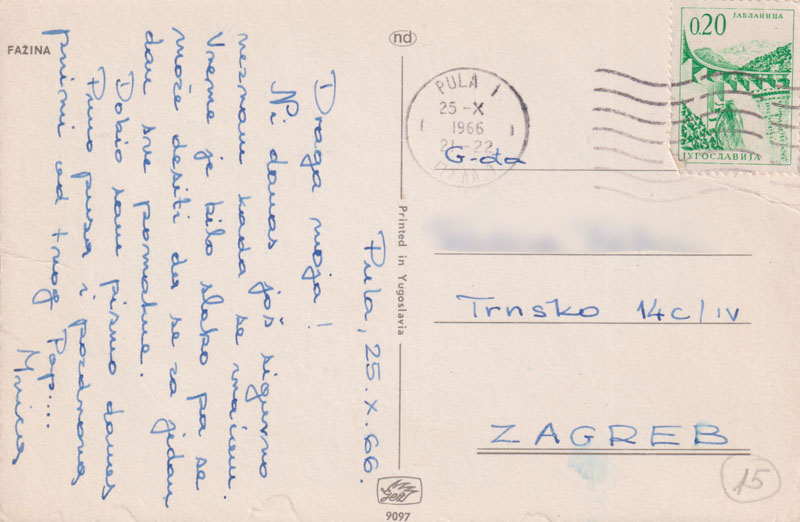 FAŽINA
Pula, 25.X.66.
Draga moja!
Ni danas još sigurno
neznam kada se vraćam.
Vreme je bilo slabo pa se
može desiti da se za jedan
dan sve pomakne.
Dobio sam pismo danas
Puno pusa i pozdrava
primi od tvog Pap....
nd
Printed in Yugoslavia
9097
PULA 1
25-X
1966
21-22
ЈАБЛАНИЦА
0.20
ЈУГОСЛАВИЈА
G-đa
Trnsko 14c/IV
ZAGREB
15